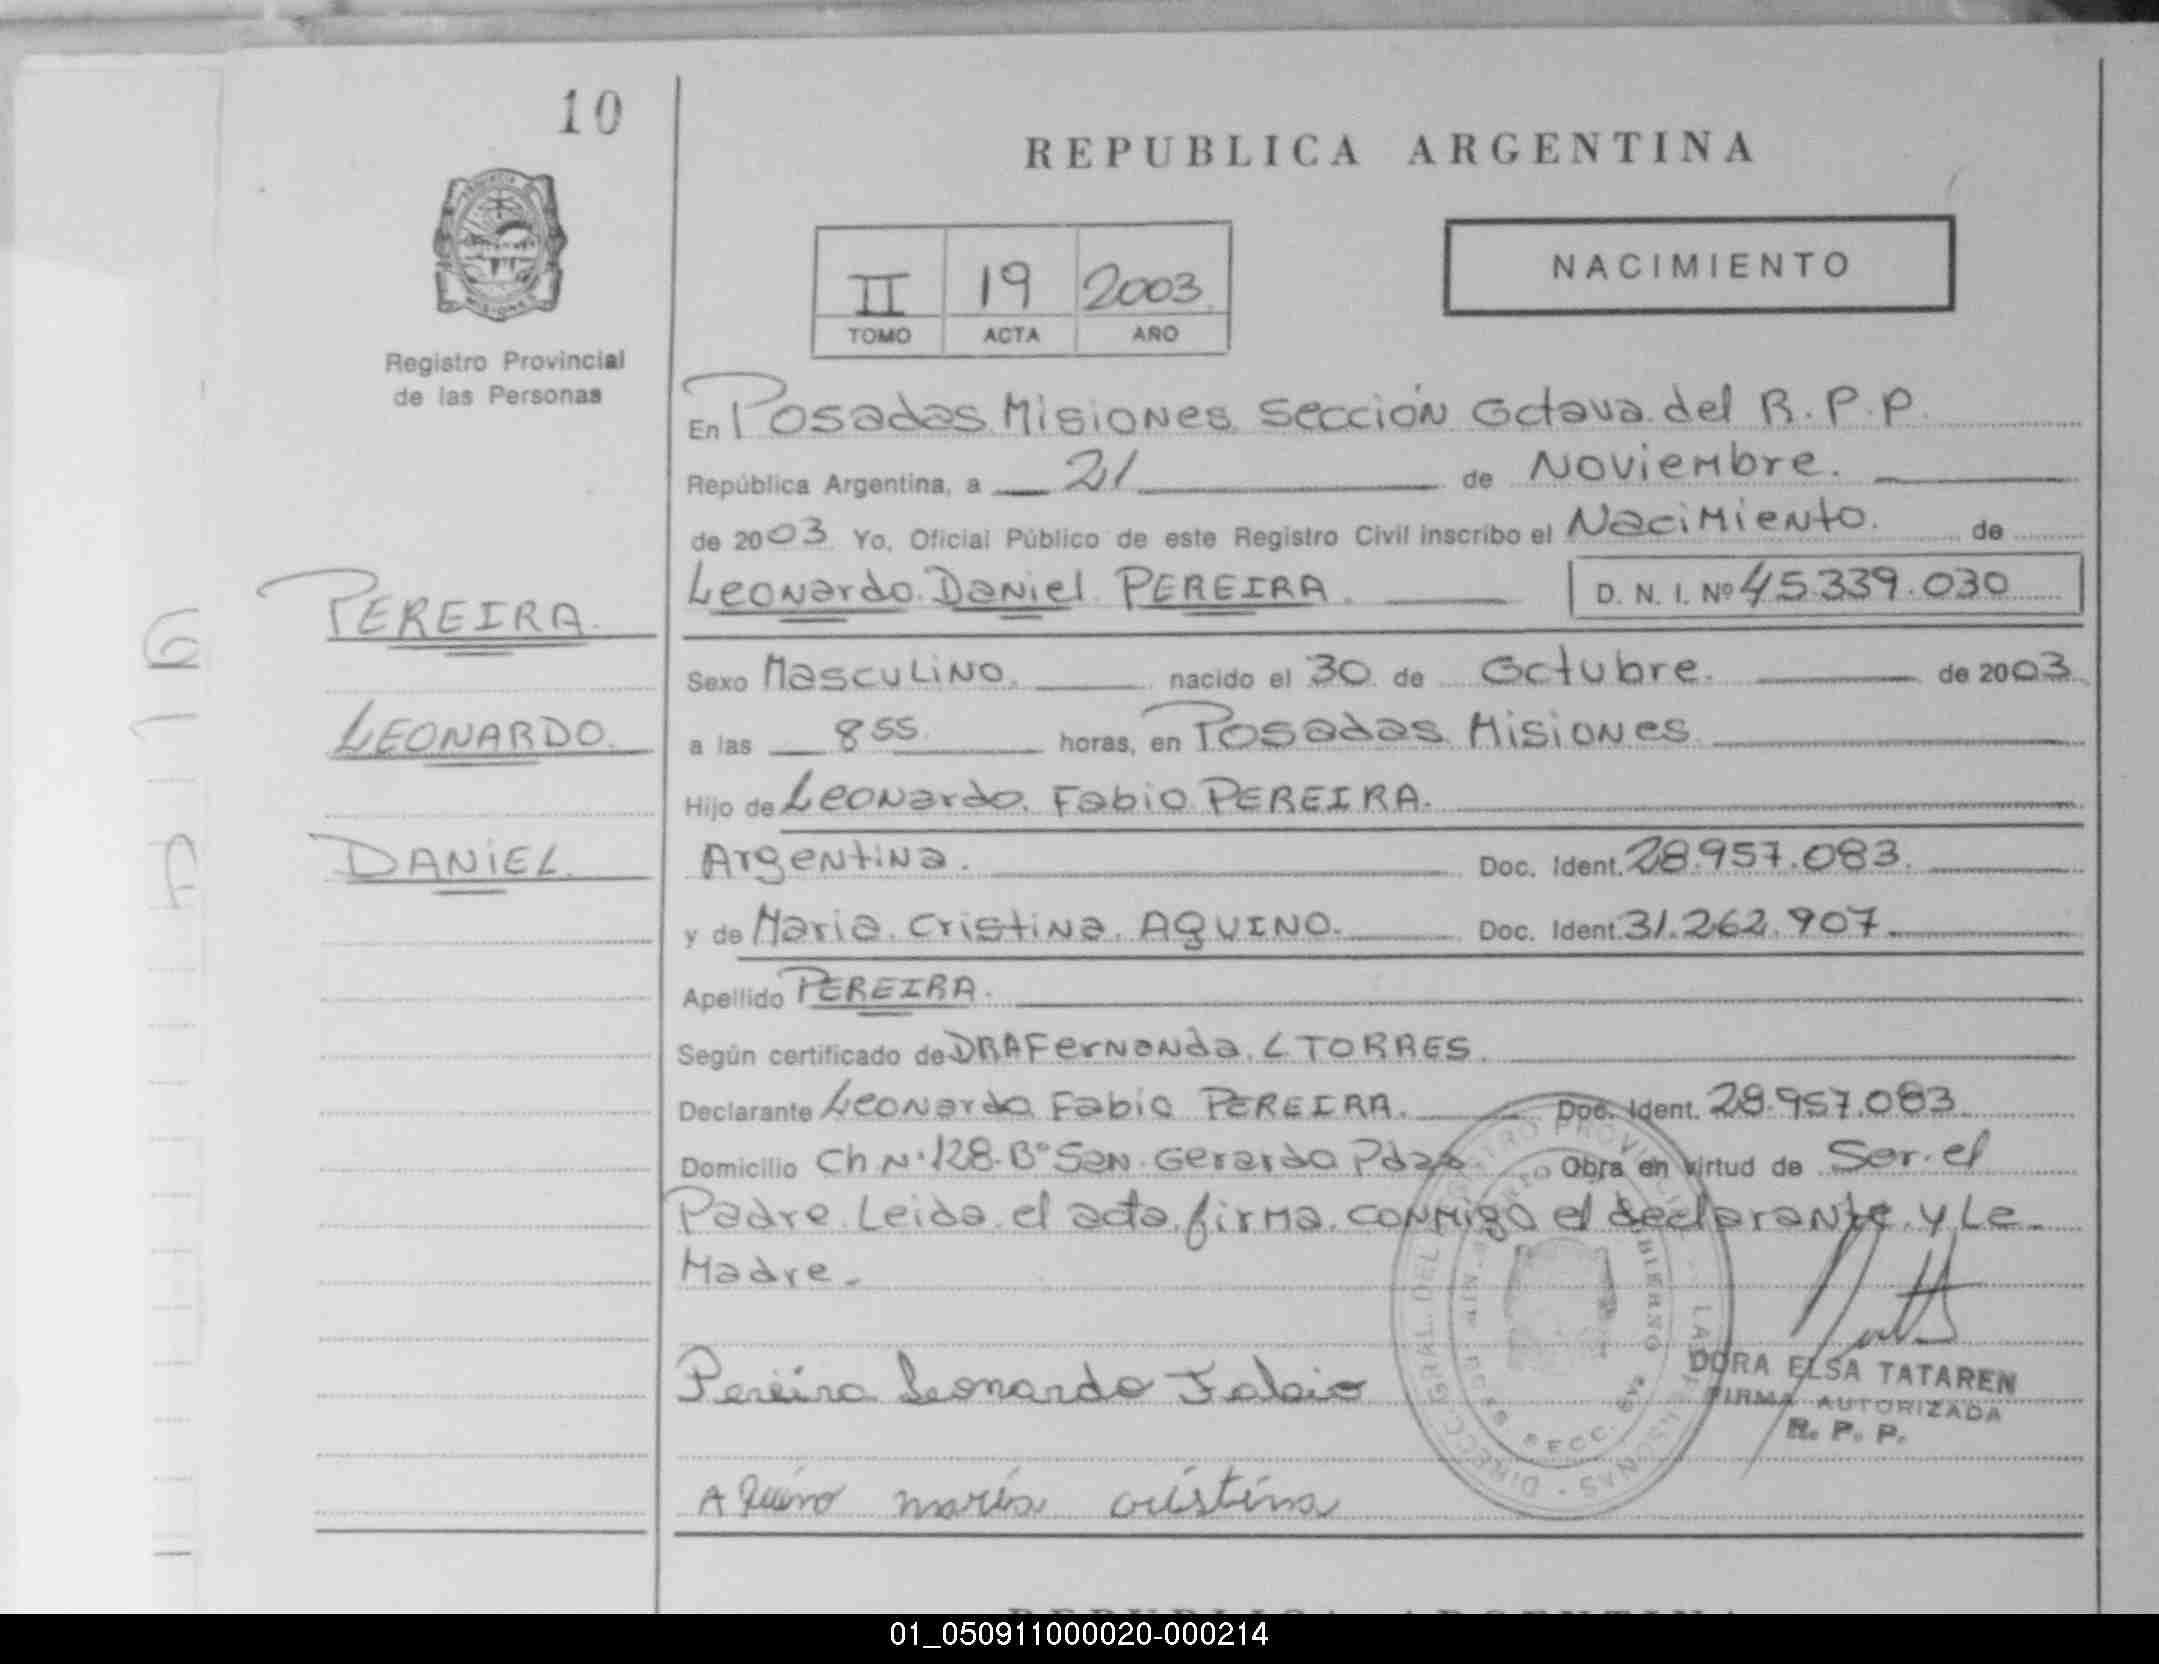 10
REPUBLICA ARGENTINA
NACIMIENTO
II 19 2003
TOMO ACTA AÑO
Registro Provincial
de las Personas
PEREIRA.
LEONARDO.
DANIEL.
En Posadas Misiones Sección Octava del R.P.P.
República Argentina, a 21 de Noviembre.
de 2003 Yo, Oficial Público de este Registro Civil inscribo el Nacimiento. de
Leonardo Daniel PEREIRA. D. N. I. Nº 45.339.030
Sexo Masculino. nacido el 30 de Octubre. de 2003
a las 8 55 horas, en Posadas Misiones
Hijo de Leonardo Fabio PEREIRA.
Argentina. Doc. Ident. 28.957.083.
y de Maria Cristina AQUINO. Doc. Ident. 31.262.907.
Apellido PEREIRA.
Según certificado de DRA Fernanda L TORRES.
Declarante Leonardo Fabio PEREIRA. Doc. Ident. 28.957.083
Domicilio Ch Nº 128 Bº San Gerardo Pdas Obra en virtud de Ser el
Padre Leida el acta firma conmigo el declarante y La
Madre.
Pereira Leonardo Fabio
DORA ELSA TATAREN
FIRMA AUTORIZADA
R. P. P.
Aquino maría cristina
01_050911000020-000214